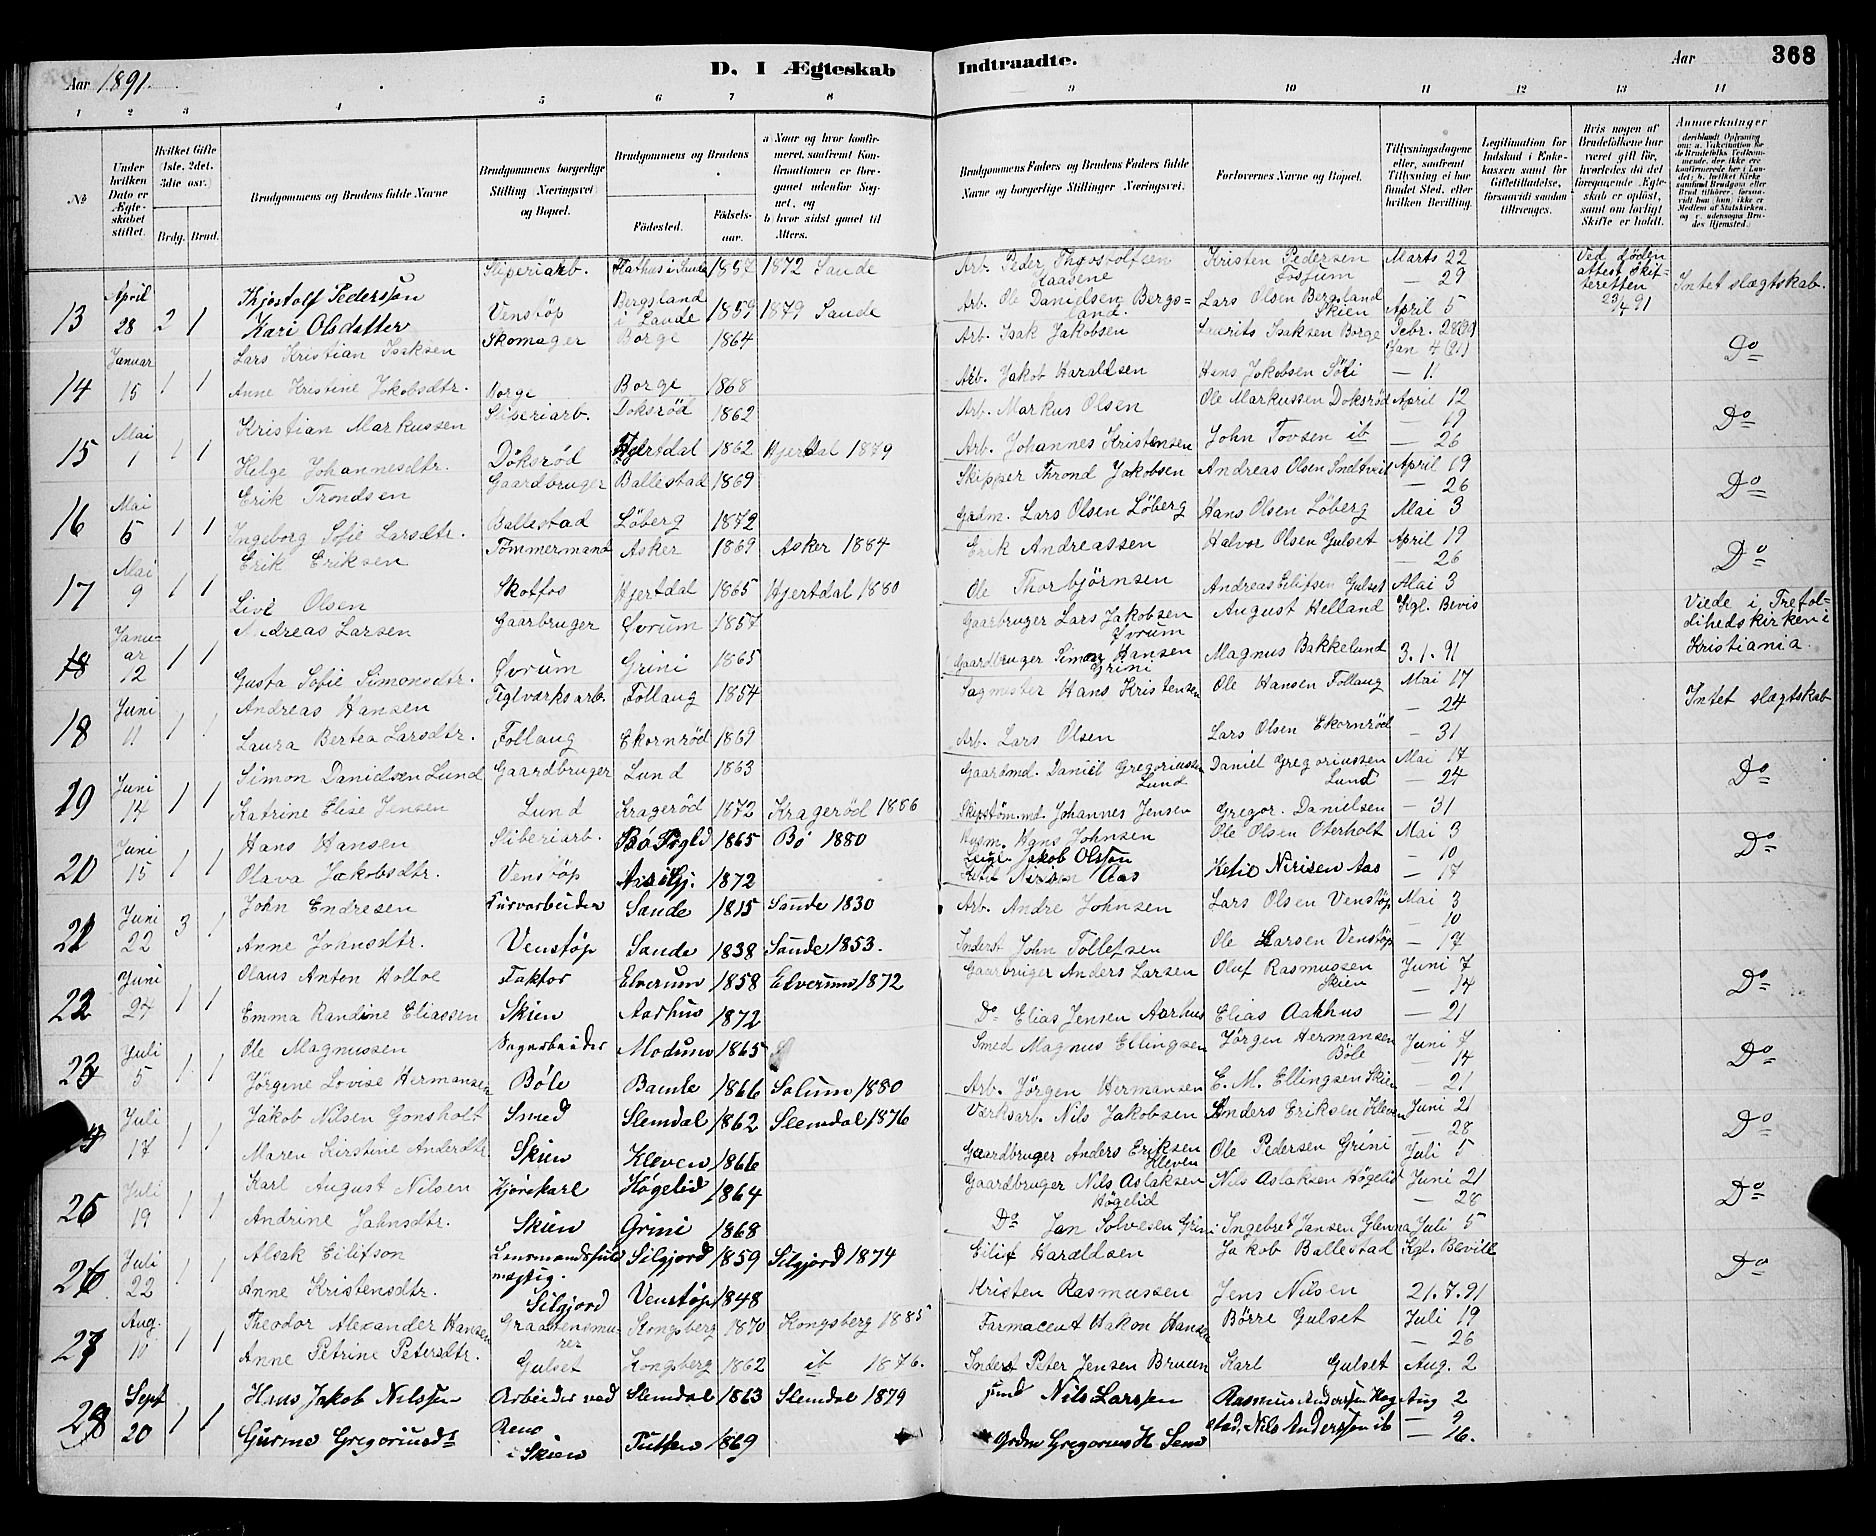 Aar 1891.
D. I Ægteskab Indtraadte.
Aar
368
1 2 3 4 5 6 7 8 9 10 11 12 13 14
№
Under hvilken Dato er Ægteskabet stiftet.
Hvilket Gifte (1ste, 2det, 3die osv.)
Brdg. Brud.
Brudgommens og Brudens fulde Navne
Brudgommens borgerlige Stilling (Næringsvei) og Bopæl.
Brudgommens og Brudens
Fødested. Fødselsaar.
a. Naar og hvor konfirmeret, saafremt Konfirmationen er foregaaet udenfor Sognet, og
b. hvor sidst gaaet til Alters.
Brudgommens Faders og Brudens Faders fulde Navne og borgerlige Stillinger (Næringsvei).
Forlovernes Navne og Bopæl.
Tillysningsdagene eller, saafremt Tillysning ei har fundet Sted, efter hvilken Bevilling.
Legitimation for Indskud i Enkekassen samt for Giftetilladelse, forsaavidt saadan tiltrænges.
Hvis nogen af Brudefolkene har været gift før, hvorledes da det foregaaende Ægteskab er opløst, samt om lovligt Skifte er holdt.
Anmærkninger
13 April 28 2 1 Kjøstolf Pedersson Sliperiarb. Hathus i Sande 1857 1872 Sande Arb. Peder Thovstolfsen Haasene Kristen Pedersen Fossum Marts 22 — 29 Ved døden attest Skifteretten 23/4 91 Intet slægtskab.
Kari Olsdatter Venstöp Bergsland i Saude 1859 1879 Sande Arb. Ole Danielsen Bergsland. Lars Olsen Bergsland Skien April 5
14 Januar 15 1 1 Lars Kristian Isaksen Skomager Borge 1864 Arb. Isak Jakobsen Laurits Isaksen Borge Febr. 28 Jan 4 (91) Do
Anne Kristine Jakobsdtr. Borge Borge 1868 Arb. Jakob Haraldsen Hans Jakobsen Söli — 11
15 Mai 1 1 1 Kristian Markussen Sliperiarb. Doksröd 1862 Arb. Markus Olsen Ole Markussen Doksröd April 12 — 19 Do
Helge Johannesdtr. Döksröd Hjertdal 1862 Hjertdal 1879 Arb. Johannes Kristensen John Tovsen ib — 26
16 Mai 6 1 1 Erik Trondsen Gaardbruger Ballestad 1869 Skipper Thrond Jakobsen Andreas Olsen April 19 — 26 Do
Ingeborg Sofie Larsdtr. Ballestad Löberg 1872 Gadm. Lars Olsen Löberg Hans Olsen Löberg Mai 3
17 Mai 9 1 1 Erik Eriksen Tömmermand Asker 1869 Asker 1884 Erik Andreassen Halvor Olsen Gulset April 19 — 26 Do
Live Olsen Skotfos Hjertdal 1865 Hjertdal 1880 Ole Thorbjörnsen Andreas Eilifsen Gulset Mai 3
18 Januar 12 1 1 Andreas Larsen Gaarbruger Øvrum 1857 Gaarbruger Lars Jakobsen Øvrum August Helland Kgl. Bevis Viede i Trefoldihedskirken i Kristiania
Gusta Sofie Simonsdtr. Øvrum Grini 1865 Gaardbruger Simon Hansen Grini Magnus Bakkelund 3.1.91
18 Juni 11 1 1 Andreas Hansen Teglværksarb. Follaug 1854 Sagmester Hans Kristensen Ole Hansen Follaug Mai 17 — 24 Intet slægtskab
Laura Bertea Larsdtr. Follaug Ekornröd 1869 Arb. Lars Olsen Lars Olsen Ekornröd — 31
19 Juni 14 1 1 Simon Danielsen Lund Gaardbruger Lund 1863 Gaardmd. Daniel Gregoriussen Lund Daniel Gregoriussen Lund Mai 17 — 24 Do
Katrine Elise Jensen Lund Kragerød 1872 Kragerød 1886 Skipstöm.md. Johannes Jensen Gregor. Danielsen — 31
20 Juni 15 1 1 Hans Hansen Sliberiarb. Bö 1865 Bö 1880 Husm. Hans Johnsen Ole Olsen Oterholt Mai 3 — 10 Do
Olava Jakobsdtr. Venstöp Aas i Gj. 1872 Jakob Olsson Aas Ketil Nirisen Aas — 17
21 Juni 22 3 1 John Endresen Kurvarbeider Sande 1815 Sande 1830 Arb. Andre Johnsen Lars Olsen Venstöp Mai 3 — 10
Anne Johnsdtr. Venstøp Sande 1838 Sande 1853. Inderst John Tollefsen Ole Larsen Venstöp — 17
22 Juni 24 1 1 Olaus Anton Holtoe Faktor Elverum 1858 Elverum 1872 Gaarbruger Anders Larsen Oluf Rasmussen Skien Juni 7 — 14 Do
Emma Randine Eliassen Skien Aarhus 1872 Do Elias Jensen Aarhus Elias Aarhus — 21
23 Juli 5 1 1 Ole Magnussen Sagarbeider Modum 1865 Smed Magnus Ellingsen Jörgen Hermansen Böle Juni 7 — 14 Do
Jörgine Lovise Hermansen Böle Bamle 1866 Solum 1880 Arb. Jörgen Hermansen E. M. Ellingsen Skien — 21
Juli 17 1 1 Jakob Nilsen Gonsholt Smed Slemdal 1862 Slemdal 1876 Værksarb. Nils Jakobsen Anders Eriksen Kleven Juni 21 — 28 Do
Maren Kirstine Andersdtr. Skien Kleven 1866 Gaardbruger Anders Eriksen Kleven Ole Pedersen Grini Juli 5
25 Juli 19 1 1 Karl August Nilsen Kjørekarl Høgelid 1864 Gaardbruger Nils Aslaksen Högelid Nils Aslaksen Högelid Juni 21 — 28 Do
Andrine Jahnsdtr. Skien Grini 1868 Do Jan Solvesen Grini Ingebret Jansen Glenna Juli 5
26 Juli 22 1 1 Aslak Eilifson Lensmandsfuldmægtig. Silgjord 1859 Silgjord 1874 Eilif Haraldsen Jakob Ballestad Kgl. Bevill Do
Anne Kristensdtr. Silgjord Venstøp 1848 Kristen Rasmussen Jens Nilsen 21.7.91
27 Aug. 10 1 1 Theodor Alexander Hansen Graastensmurer Kongsberg 1870 Kongsberg 1885 Farmaceut Hakon Hansen Börre Gulset Juli 19 — 26
Anne Petrine Petersdtr. Gulset Kongsberg 1862 ib 1876. Inderst Peter Jensen Bruun Karl Gulset Aug. 2
28 Sept 20 1 1 Hans Jakob Nilssen Arbeider ved Slemdal 1863 Slemdal 1879 Nils Larssen Rasmus Anderssen Hogstad, Nils Anderssen ib Aug 2 — 9
Gurine Gregoriusdt Skien Tufte 1869 Grdm Gregorius H. — 26.